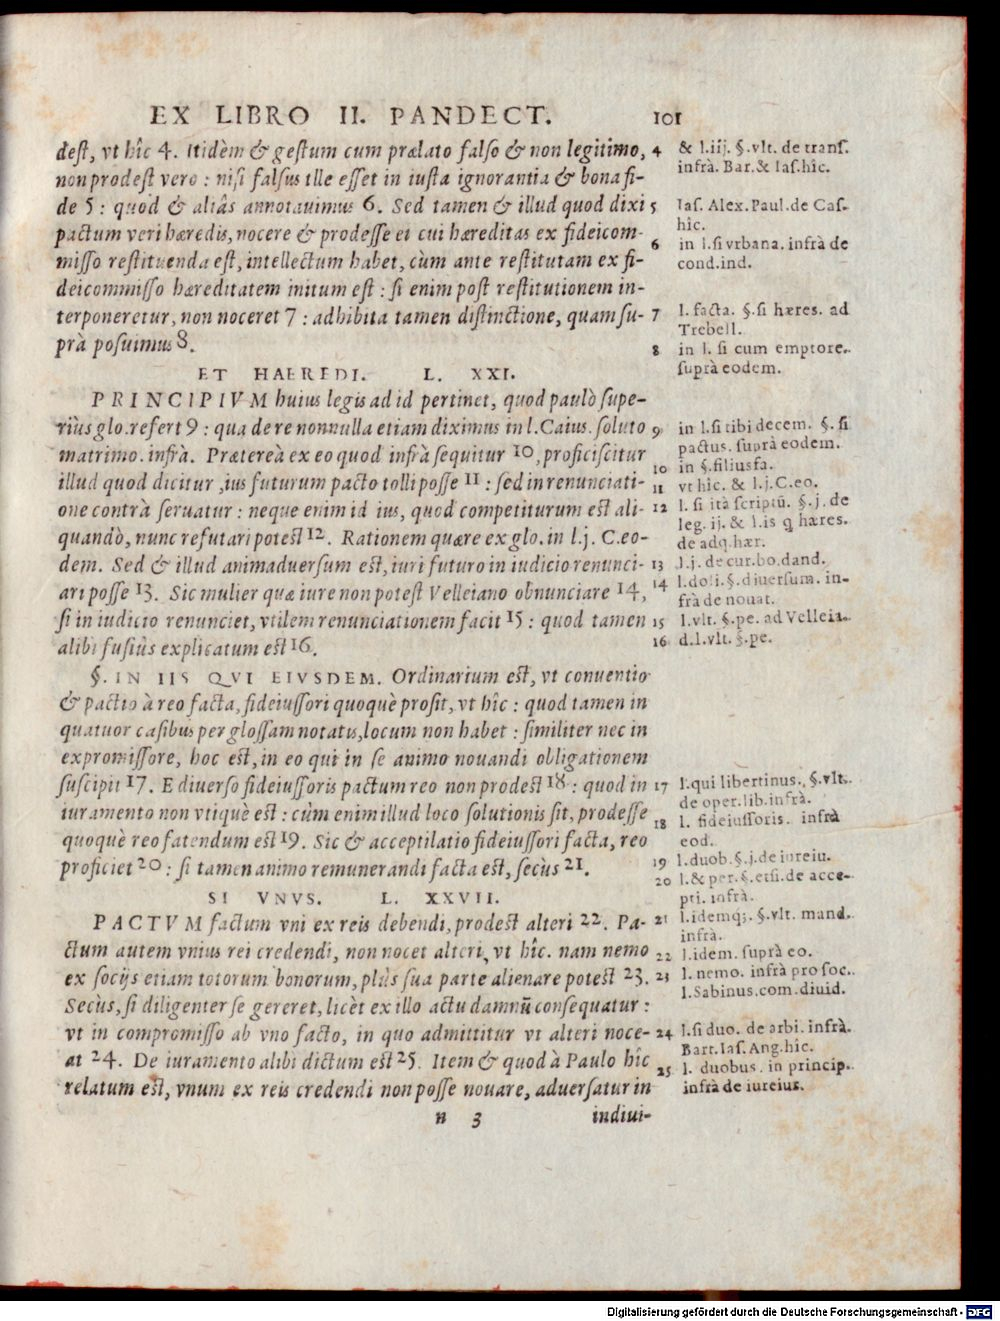 EX LIBRO II. PANDECT. 101
dest, vt hîc 4. Itidèm & gestum cum prælato falso & non legitimo,
non prodest vero : nisi falsus ille esset in iusta ignorantia & bona fi-
de 5 : quod & aliâs annotauimus 6. Sed tamen & illud quod dixi
pactum veri hæredis, nocere & prodesse ei cui hæreditas ex fideicom-
misso restituenda est, intellectum habet, cùm ante restitutam ex fi-
deicommisso hæreditatem initum est : si enim post restitutionem in-
terponeretur, non noceret 7 : adhibita tamen distinctione, quam su-
prà posuimus 8.
ET HAEREDI. L. XXI.
PRINCIPIVM huius legis ad id pertinet, quod paulò supe-
riùs glo. refert 9 : qua de re nonnulla etiam diximus in l. Caius. soluto
matrimo. infrà. Prætereà ex eo quod infrà sequitur 10, proficiscitur
illud quod dicitur ,ius futurum pacto tolli posse 11 : sed in renunciati-
one contrà seruatur : neque enim id ius, quod competiturum est ali-
quandò, nunc refutari potest 12. Rationem quære ex glo. in l.j. C. eo-
dem. Sed & illud animaduersum est, iuri futuro in iudicio renunci-
ari posse 13. Sic mulier quæ iure non potest Velleiano obnunciare 14,
si in iudicio renunciet, vtilem renunciationem facit 15 : quod tamen
alibi fusiùs explicatum est 16.
§. IN IIS QVI EIVSDEM. Ordinarium est, vt conuentio
& pactio à reo facta, fideiussori quoquè prosit, vt hîc : quod tamen in
quatuor casibus per glossam notatis, locum non habet : similiter nec in
expromissore, hoc est, in eo qui in se animo nouandi obligationem
suscipit 17. E diuerso fideiussoris pactum reo non prodest 18 : quod in
iuramento non vtiquè est : cùm enim illud loco solutionis sit, prodesse
quoquè reo fatendum est 19. Sic & acceptilatio fideiussori facta, reo
proficiet 20 : si tamen animo remunerandi facta est, secùs 21.
SI VNVS. L. XXVII.
PACTVM factum vni ex reis debendi, prodest alteri 22. Pa-
ctum autem vnius rei credendi, non nocet alteri, vt hîc. nam nemo
ex socijs etiam totorum bonorum, plùs sua parte alienare potest 23.
Secùs, si diligenter se gereret, licèt ex illo actu damnū consequatur :
vt in compromisso ab vno facto, in quo admittitur vt alteri noce-
at 24. De iuramento alibi dictum est 25. Item & quod à Paulo hîc
relatum est, vnum ex reis credendi non posse nouare, aduersatur in
n 3 indiui-
4 & l.iij. §.vlt. de trans.
infrà. Bar.& Ias.hîc.
5 Ias. Alex. Paul.de Cas.
hîc.
6 in l.si vrbana. infrà de
cond.ind.
7 l. facta. §.si hæres. ad
Trebell.
8 in l. si cum emptore.
suprà eodem.
9 in l.si tibi decem. §. si
pactus. suprà eodem.
10 in §.filiusfa.
11 vt hîc. & l.j.C.eo.
12 l. si ità scriptū. §.j. de
leg. ij. & l.is q hæres.
de adq.hær.
13 l.j. de cur.bo.dand.
14 l.doli.§.diuersum. in-
frà de nouat.
15 l.vlt. §.pe. ad Velleia.
16 d.l.vlt. §.pe.
17 l.qui libertinus. §.vlt.
de oper.lib.infrà.
18 l. fideiussoris. infrà
eod.
19 l.duob.§.j.de iureiu.
20 l.& per. §.etsi.de acce-
pti. infrà.
21 l.idemq;. §.vlt. mand.
infrà.
22 l.idem. suprà eo.
23 l. nemo. infrà pro soc.
l.Sabinus.com.diuid.
24 l.si duo. de arbi. infrà.
Bart.Ias.Ang.hîc.
25 l. duobus. in princip.
infrà de iureiur.
Digitalisierung gefördert durch die Deutsche Forschungsgemeinschaft - DFG